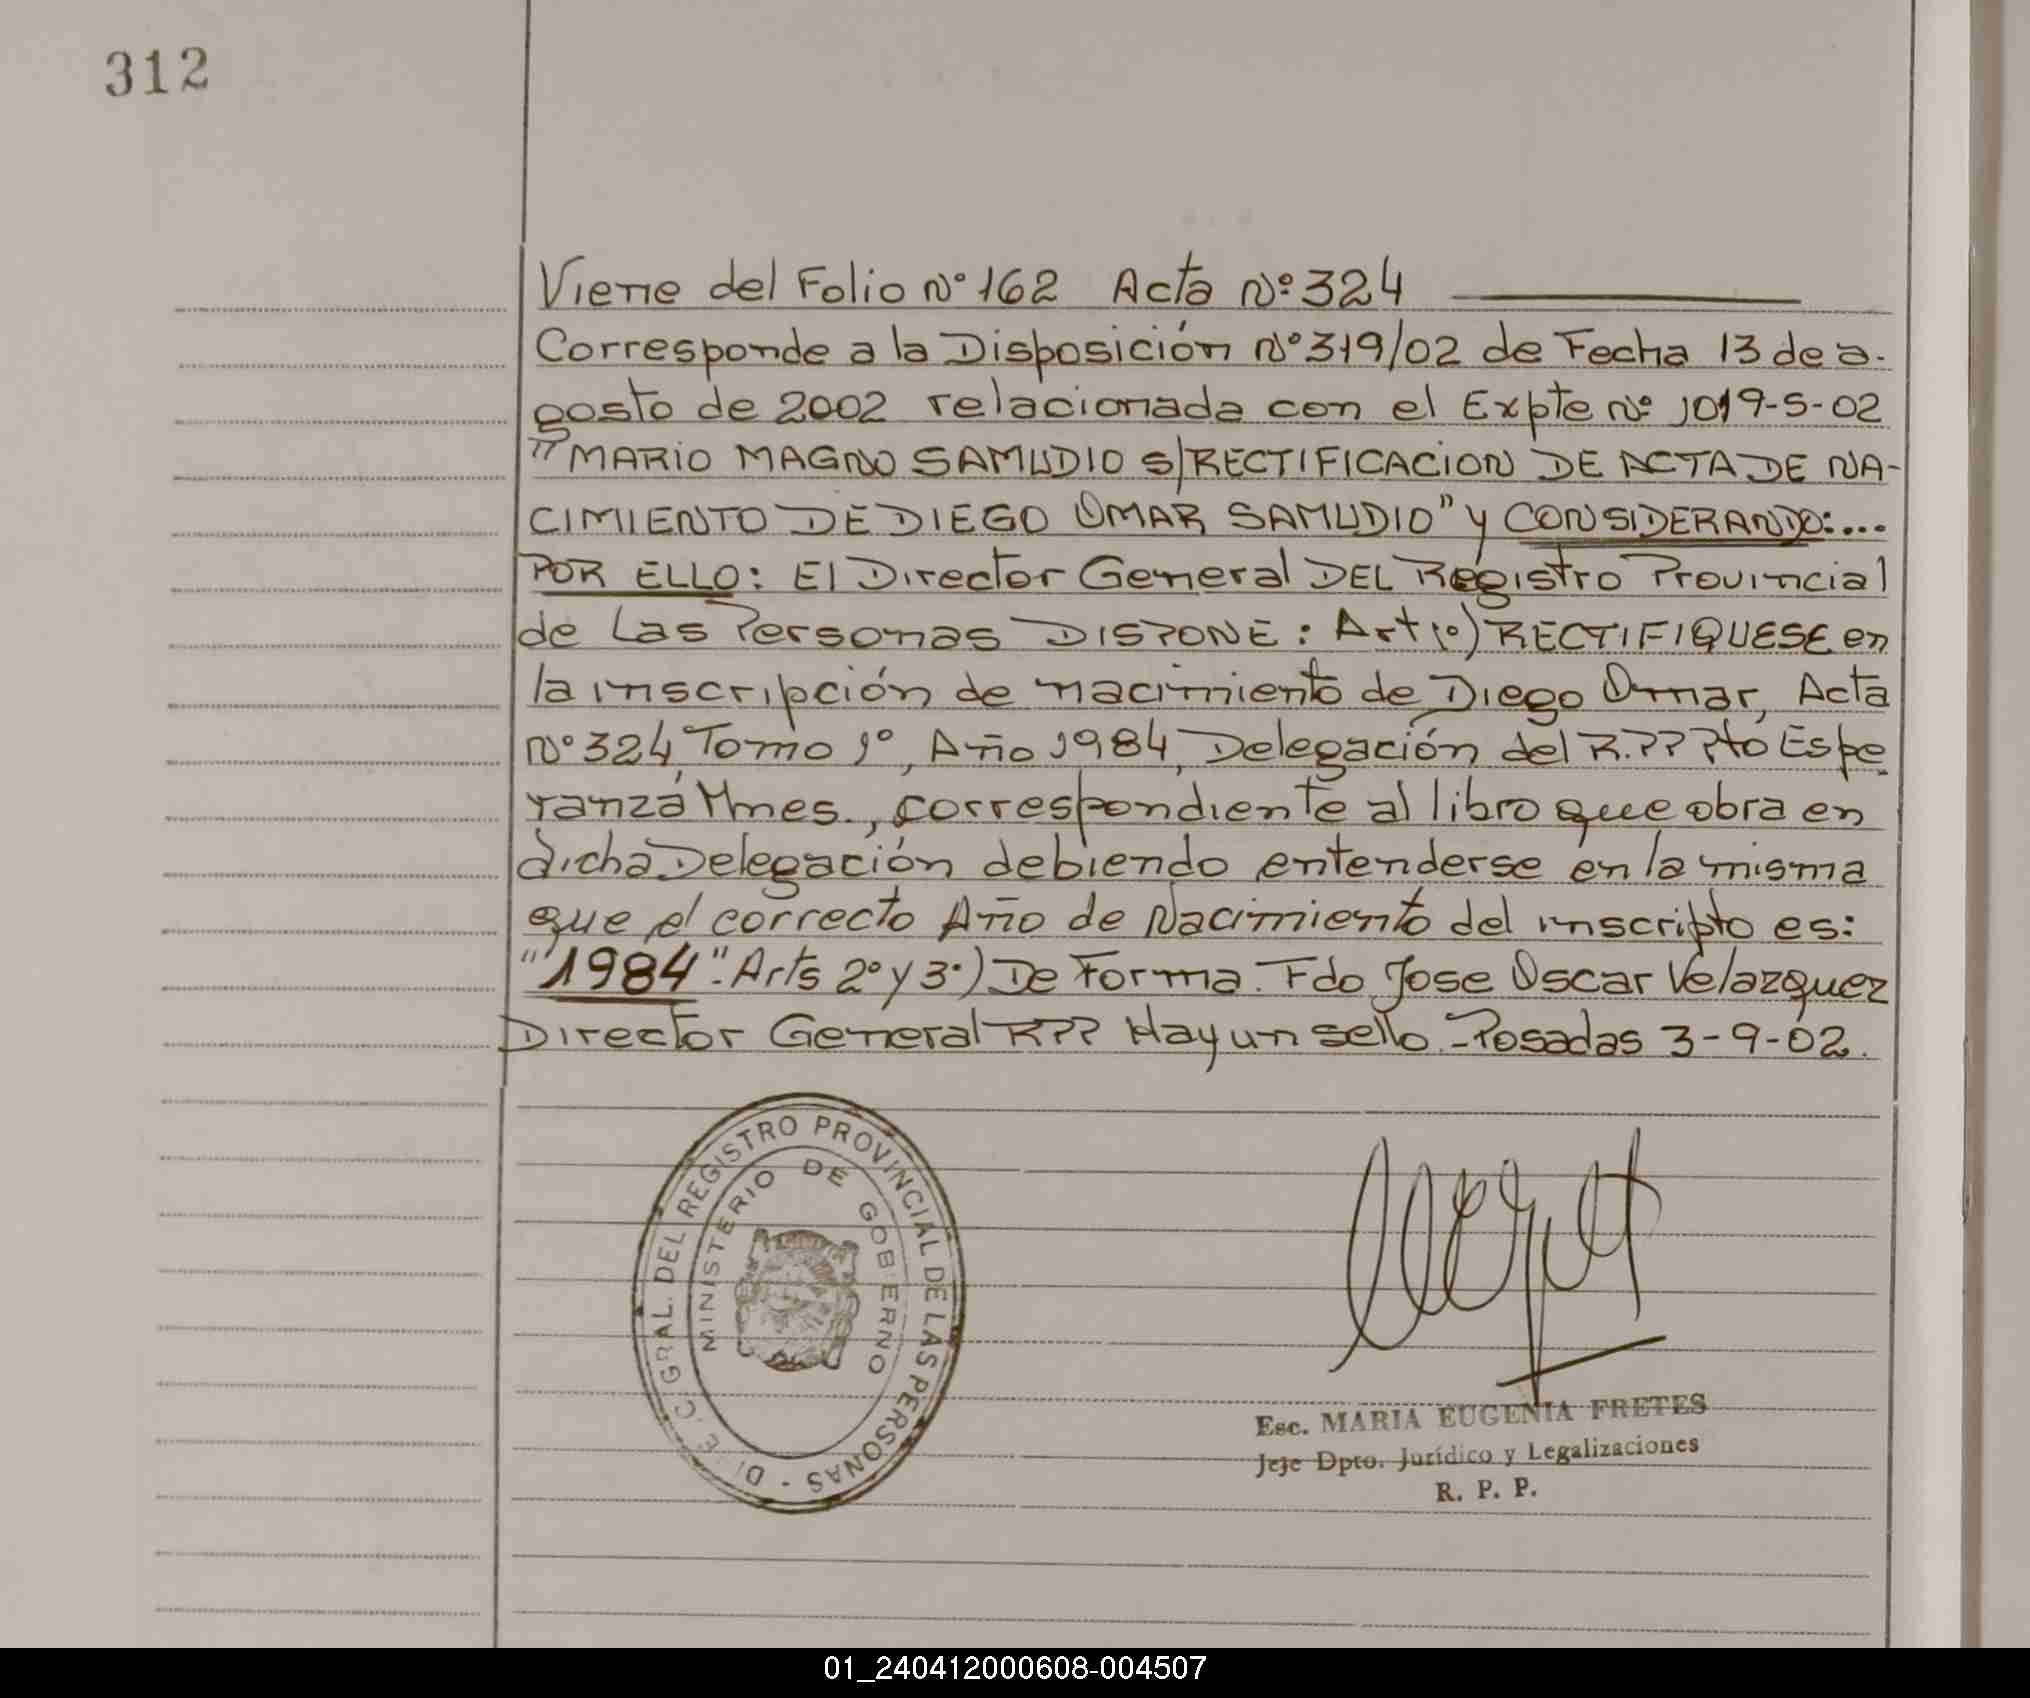 312
Viene del Folio Nº 162 Acta Nº 324
Corresponde a la Disposición Nº 319/02 de Fecha 13 de a-
gosto de 2002 relacionada con el Expte Nº 1019-S-02
"MARIO MAGNO SAMUDIO S/RECTIFICACION DE ACTA DE NA-
CIMIENTO DE DIEGO OMAR SAMUDIO" y CONSIDERANDO:...
POR ELLO: El Director General DEL Registro Provincial
de Las Personas DISPONE: Art 1º) RECTIFIQUESE en
la inscripción de nacimiento de Diego Omar, Acta
Nº 324, Tomo 1º, Año 1984, Delegación del R.PP Pto Espe
ranza Mnes., correspondiente al libro que obra en
dicha Delegación debiendo entenderse en la misma
que el correcto Año de Nacimiento del inscripto es:
"1984". Arts 2º y 3º) De Forma. Fdo Jose Oscar Velazquez
Director General RPP Hay un sello.- Posadas 3-9-02.
DIREC. GRAL. DEL REGISTRO PROVINCIAL DE LAS PERSONAS -
MINISTERIO DE GOBIERNO
Esc. MARIA EUGENIA FRETES
Jefe Dpto. Jurídico y Legalizaciones
R. P. P.
01_240412000608-004507